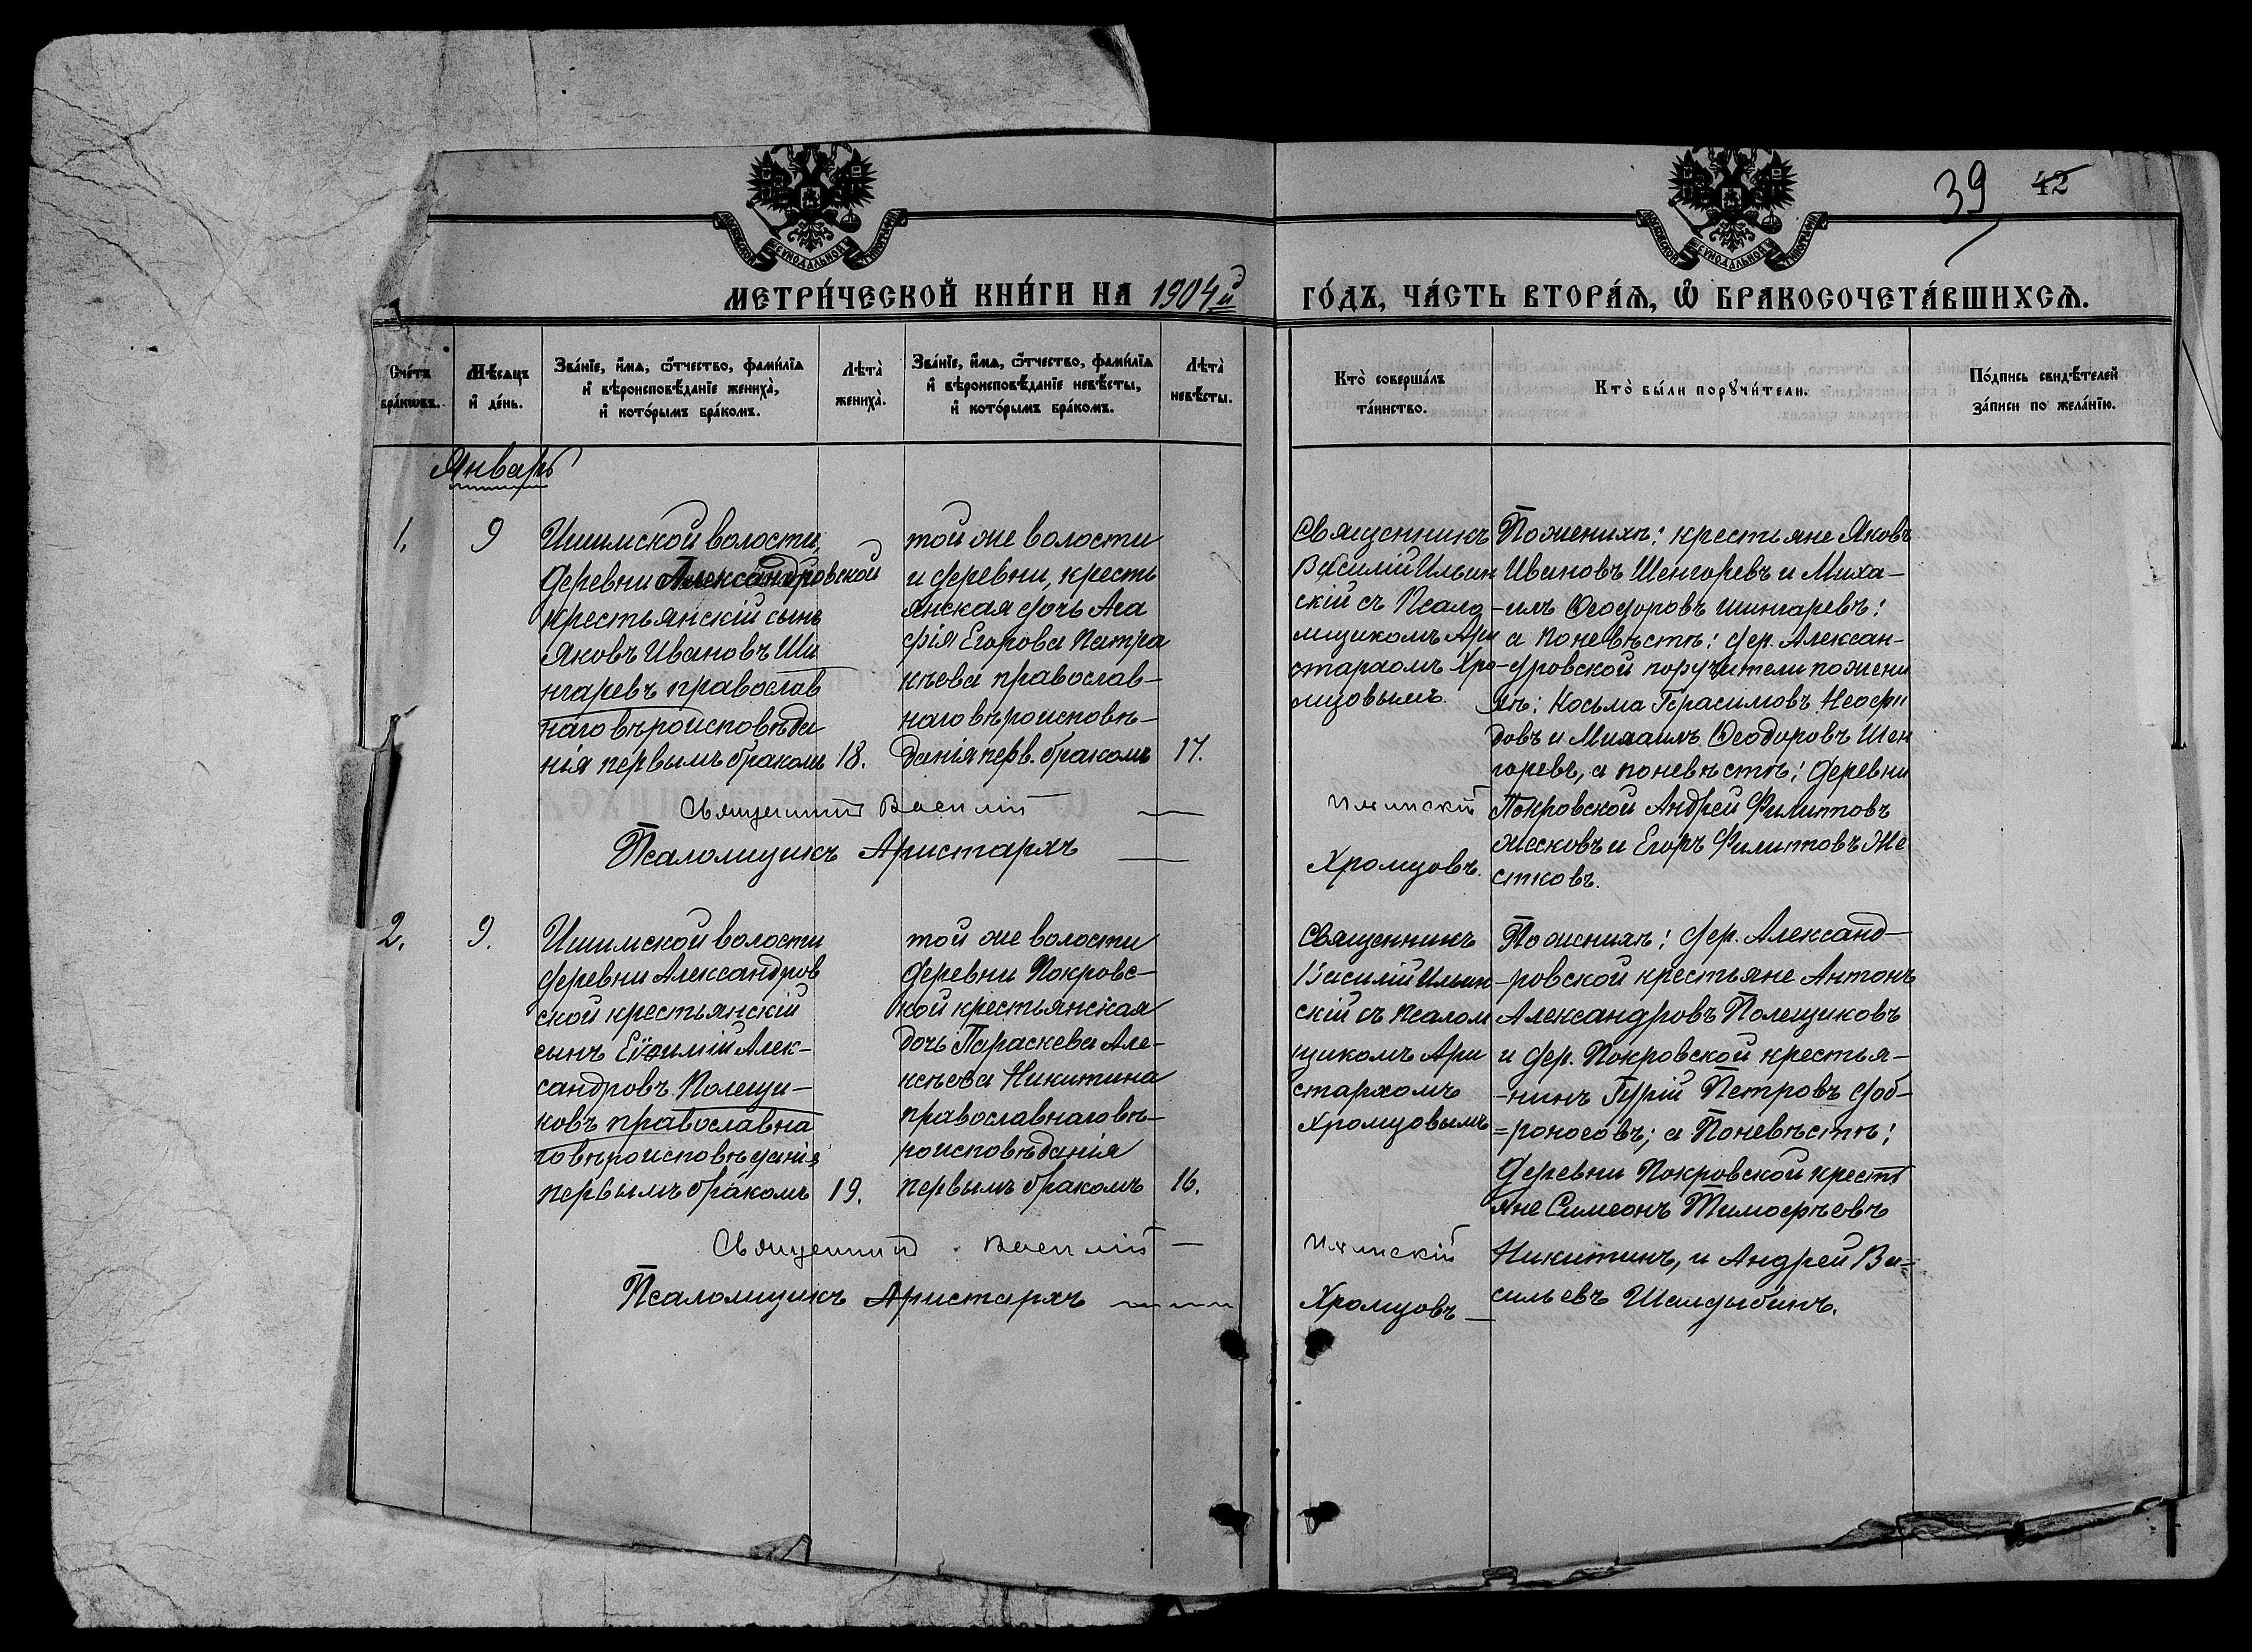 39 42
МОСКОВСКОЙ СѴНОДАЛЬНОЙ ТИПОГРАФИИ
МОСКОВСКОЙ СѴНОДАЛЬНОЙ ТИПОГРАФИИ
МЕТРИ́ЧЕСКОЙ КНИ́ГИ НА 1904й
ГО́ДЪ, ЧА́СТЬ ВТОРА́Ѧ, Ѽ БРАКОСОЧЕТА́ВШИХСѦ.
Сче́тъ
бра́кѡвъ.
Мѣ́сѧцъ
и҆ де́нь.
Зва́нїе, и҆́мѧ, ѻ҆́тчество, фами́лїѧ
и҆ вѣроисповѣ́данїе жениха̀,
и҆ кото́рымъ бра́комъ.
Лѣта̀
жениха̀.
Зва́нїе, и҆́мѧ, ѻ҆́тчество, фами́лїѧ
и҆ вѣроисповѣ́данїе невѣ́сты,
и҆ кото́рымъ бра́комъ.
Лѣта̀
невѣ́сты.
Кто̀ соверша́лъ
та́инство.
Кто̀ бы́ли порꙋчи́тели.
По́дпись свидѣ́телей
за́писи по жела́нїю.
Январь
1.
9
Ишимской волости,
деревни Александровской
крестьянскій сынъ
Яковъ Ивановъ Ши
нгаревъ православ
наго вѣроисповѣда
нія первымъ бракомъ 18.
той же волости
и деревни, кресть
янская дочь Ага
фія Егорова Патра
кѣева православ-
наго вѣроисповѣ-
данія перв. бракомъ 17.
Священникъ
Василій Ильин
скій съ Псало
мщикомъ Ари
стархомъ Хро
мцовымъ.
По женихѣ: крестьяне Яковъ
Ивановъ Шенгоревъ и Миха-
-илъ Ѳеодоровъ Шингаревъ:
а по невѣстѣ: дер. Алексан-
-дровской поручители по жени
хѣ: Косьма Герасимовъ Неофи
довъ и Михаилъ Ѳеодоровъ Шен
горевъ, а по невѣстѣ: деревни
Покровской Андрей Филипповъ
жесковъ и Егоръ Филипповъ Же
стковъ.
Священникъ Василій — Ильинскій
Псаломщикъ Аристархъ — Хромцовъ.
2.
9.
Ишимской волости
деревни Александров
ской крестьянскій
сынъ Еѵѳимій Алек-
сандровъ Полещи-
ковъ православна
го вѣроисповѣданія
первымъ бракомъ 19.
той же волости
деревни Покровс-
кой крестьянская
дочь Параскева Але-
ксѣева Никитина
православнаго вѣ-
роисповѣданія
первымъ бракомъ 16.
Священникъ
Василій Ильин
скій съ псалом
щикомъ Ари
стархомъ
Хромцовымъ
По женихѣ: дер. Александ-
-ровской крестьяне Антонъ
Александровъ Полещиковъ
и дер. Покровской крестья-
-нинъ Гурій Петровъ доб-
=роносовъ; а По невѣстѣ:
деревни Покровской кресть
яне Симеонъ Тимофѣевъ
Никитинъ, и Андрей Ва=
сильевъ Шалдыбинъ.
Священникъ Василій — Ильинскій
Псаломщикъ Аристархъ — Хромцовъ —